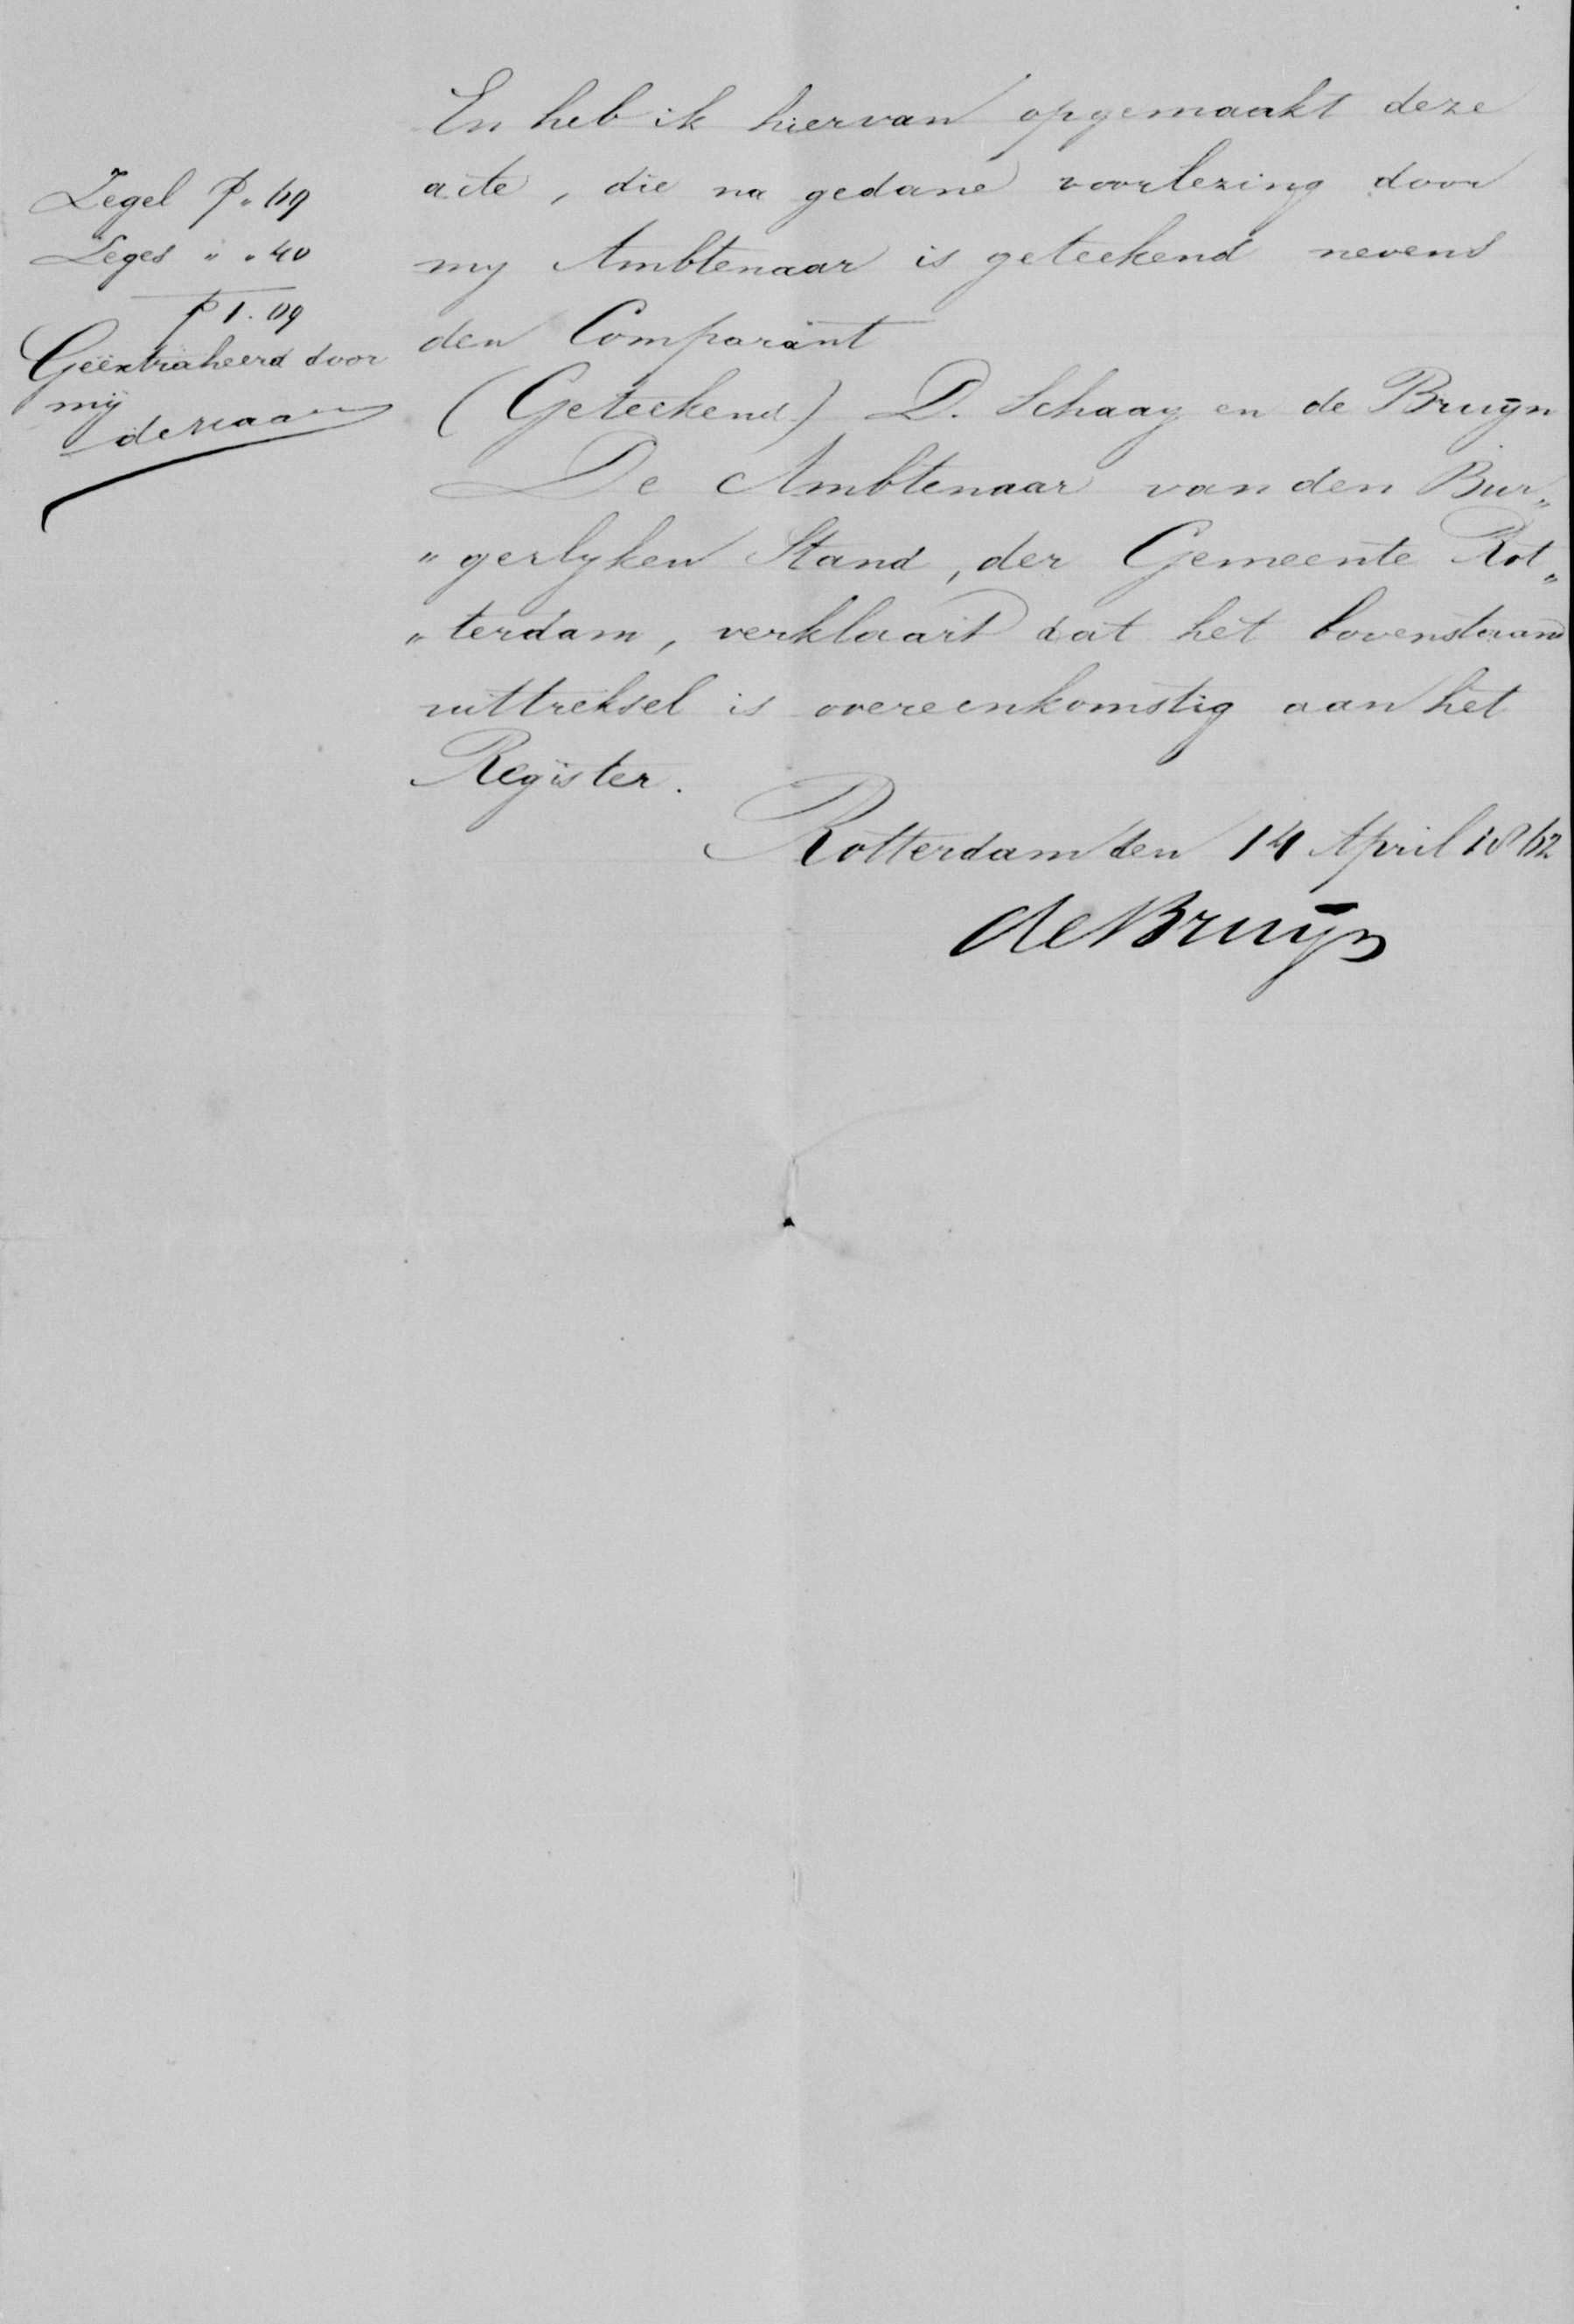 Zegel ƒ „ 69
Leges „ „ 40
ƒ 1.09
Geëxtraheerd door
mij
En heb ik hiervan opgemaakt deze
acte, die na gedane voorlezing door
my Ambtenaar is geteekend nevens
den Comparant
(Geteekend) D. Schaay en de Bruÿn
De Ambtenaar van den Bur„
„gerlyken Stand, der Gemeente Rot„
„terdam, verklaart dat het bovenstaand
uittreksel is overeenkomstig aan het
Register.
Rotterdam den 14 April 1862
de Bruÿn